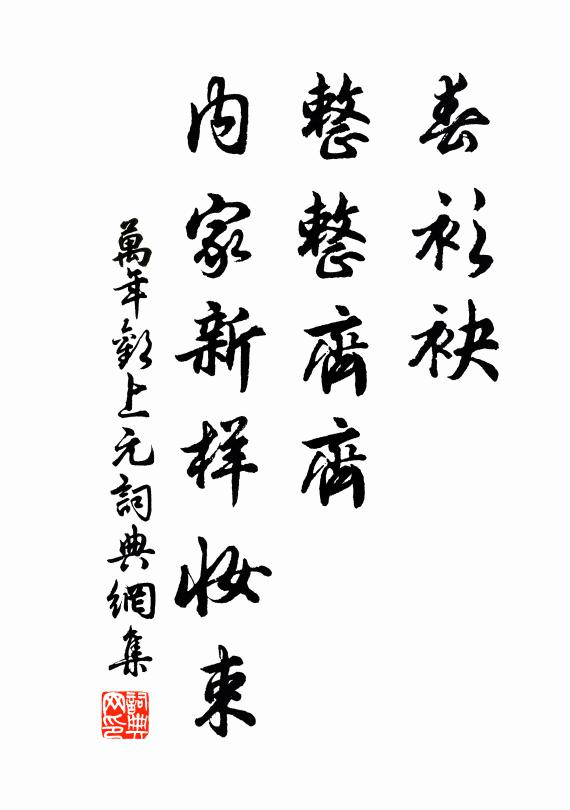 春衫袂
整整齊齊
内家新样妆束
萬年歡上元詞典網集
詞典網印